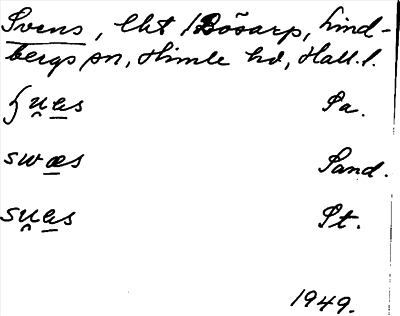 Svens, lht 1 Bösarp, Lind-
bergs sn, Himle hd, Hall. l.
ʂu̯æs Sa.
swæs Sand.
su̯æs St.
1949.